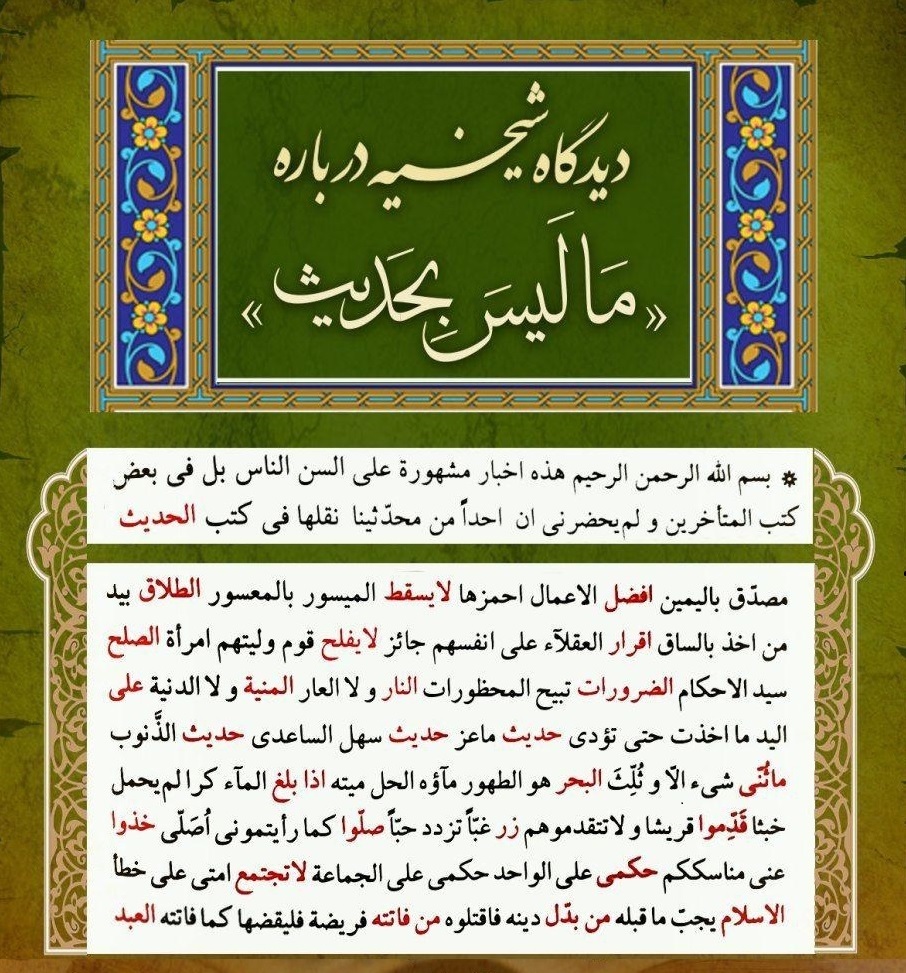 دیدگاه شیخیه درباره
« مَا لَیسَ بِحَدیث »
* بسم الله الرحمن الرحیم هذه اخبار مشهورة علی السن الناس بل فی بعض
کتب المتأخرین و لم‌یحضرنی ان احداً من محدّثینا نقلها فی کتب الحدیث
مصدّق بالیمین افضل الاعمال احمزها لایسقط المیسور بالمعسور الطلاق بید
من اخذ بالساق اقرار العقلآء علی انفسهم جائز لایفلح قوم ولیتهم امرأة الصلح
سید الاحکام الضرورات تبیح المحظورات النار و لا العار المنیة و لا الدنیة علی
الید ما اخذت حتی تؤدی حدیث ماعز حدیث سهل الساعدی حدیث الذَّنوب
ماثُنّی شیء الّا و ثُلِّثَ البحر هو الطهور مآؤه الحل میته اذا بلغ المآء کرا لم‌یحمل
خبثا قَدِّموا قریشا و لاتتقدموهم زر غبّاً تزدد حبّاً صلّوا کما رأیتمونی اُصَلّی خذوا
عنی مناسککم حکمی علی الواحد حکمی علی الجماعة لاتجتمع امتی علی خطأ
الاسلام یجبّ ما قبله من بدّل دینه فاقتلوه من فاتته فریضة فلیقضها کما فاتته العبد